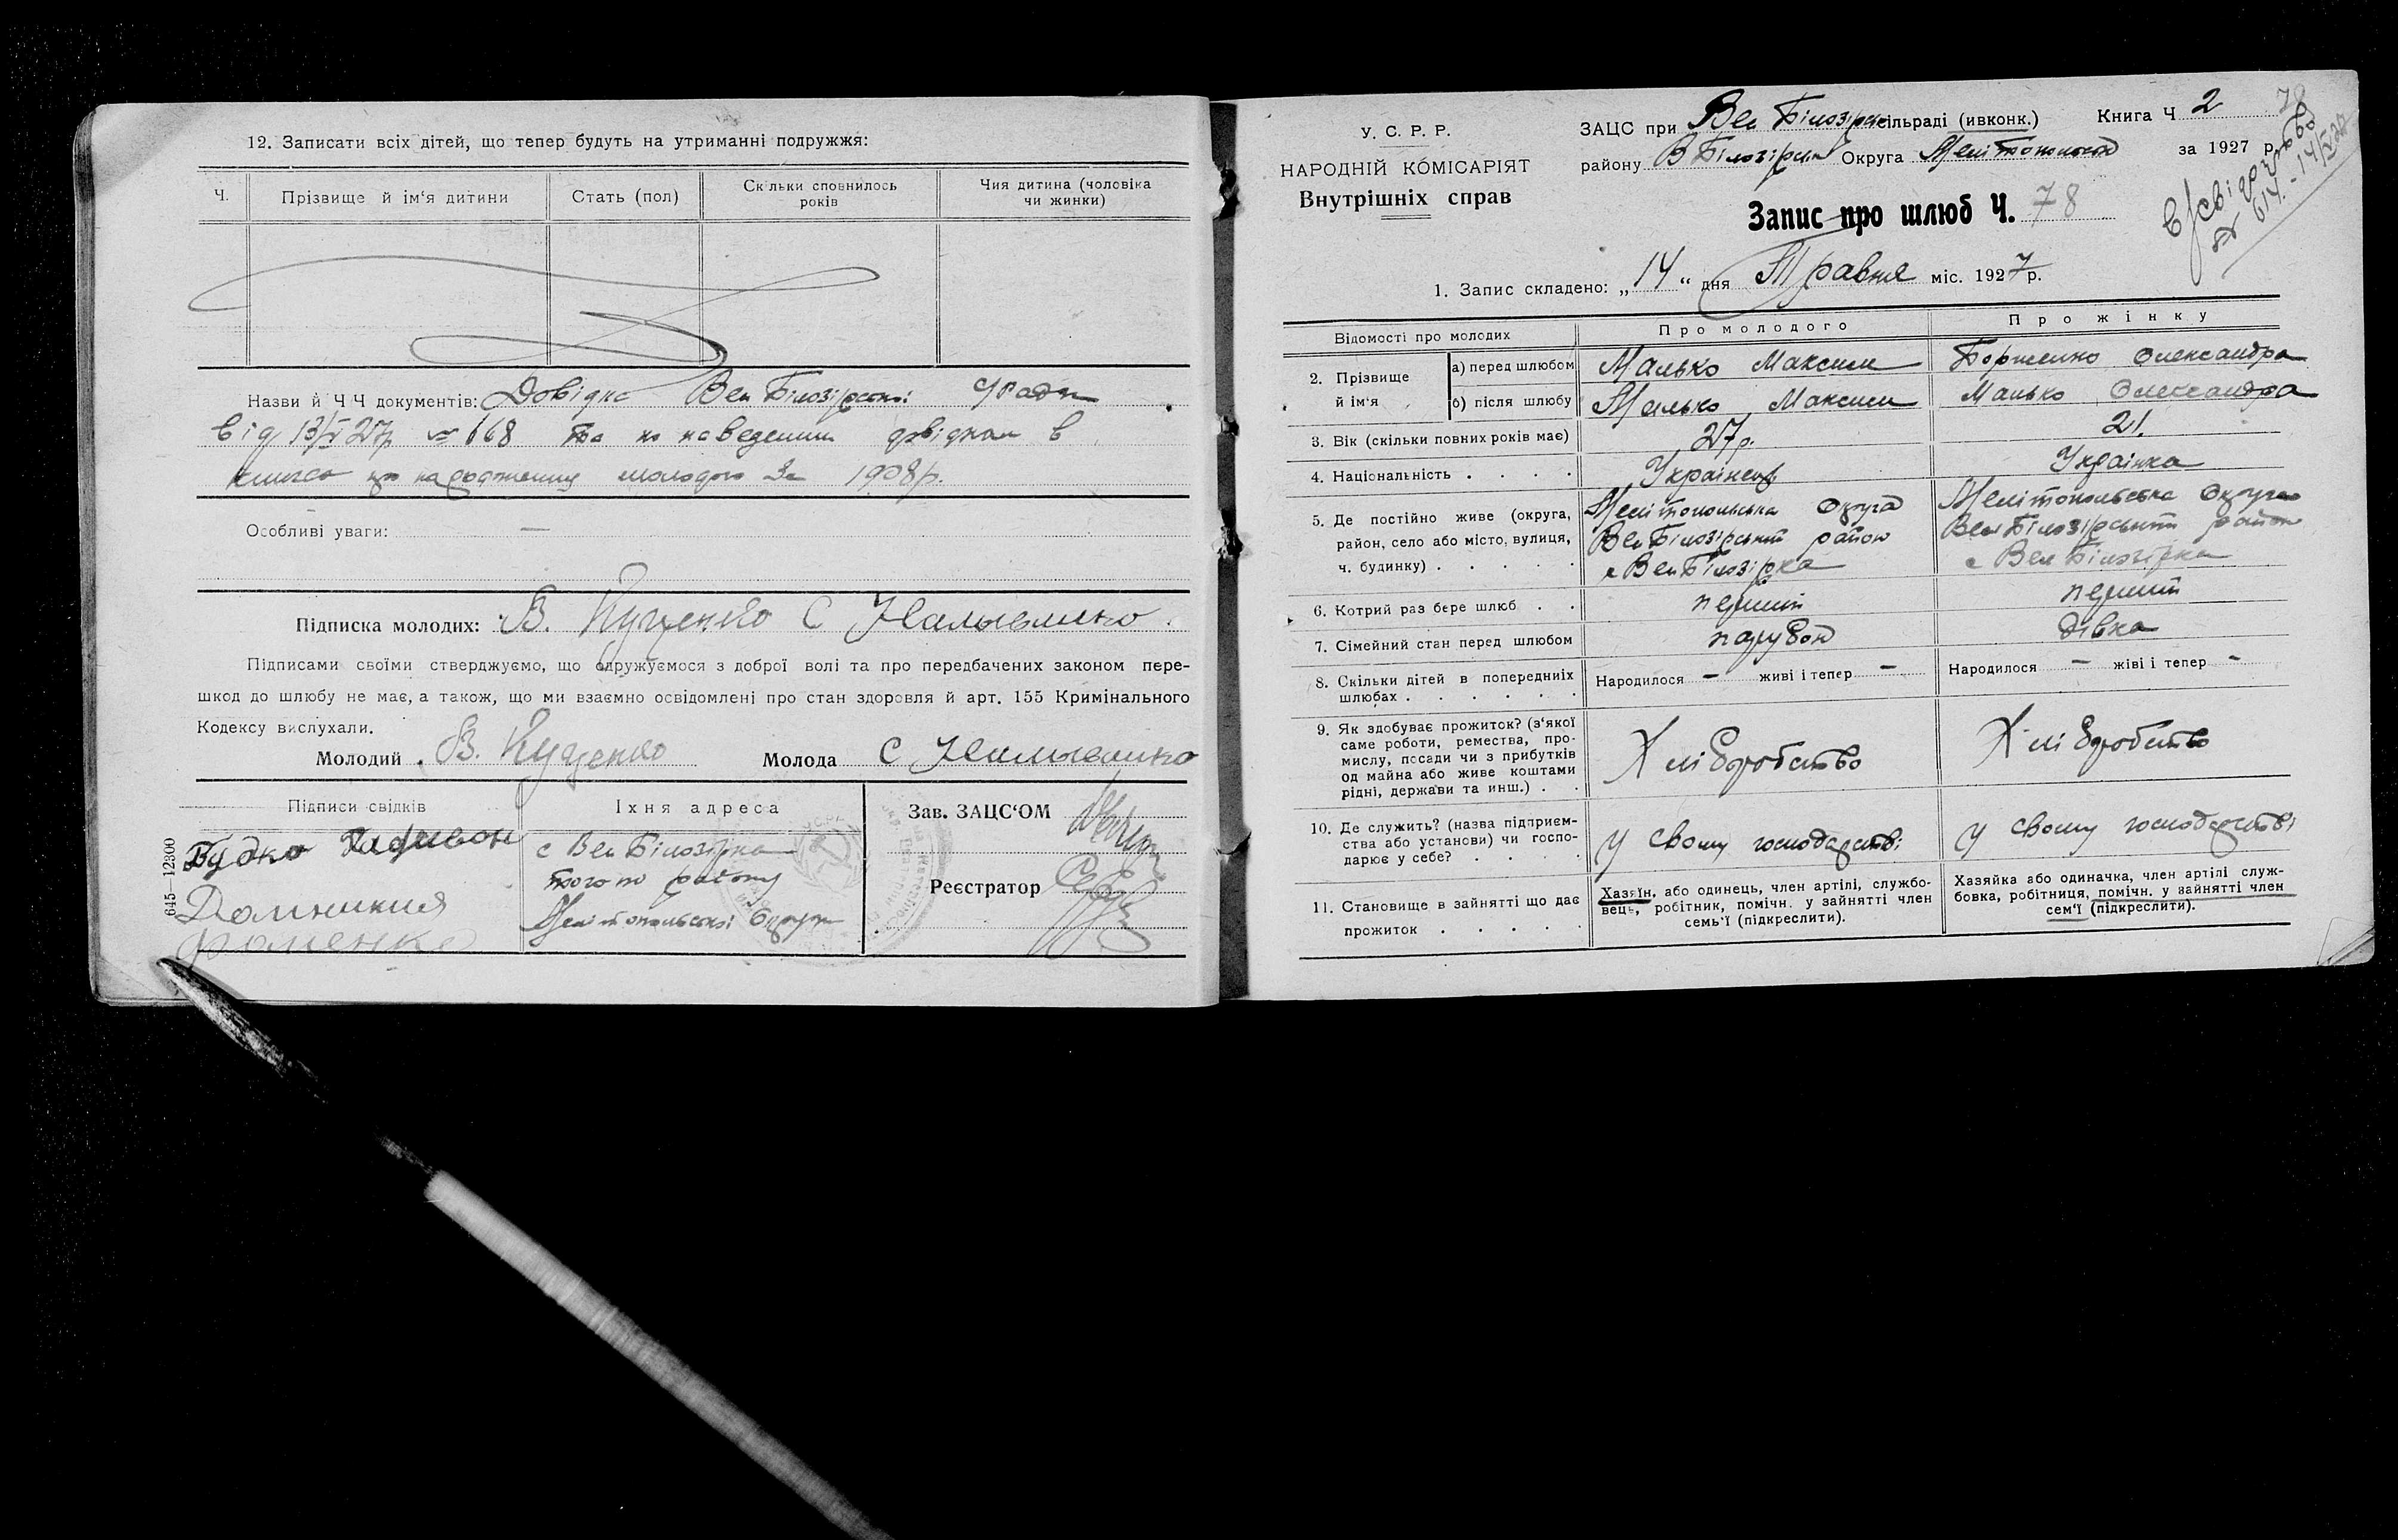 12. Записати всіх дітей, що тепер будуть на утриманні подружжя:
Ч.
Прізвище й ім'я дитини
Стать (пол)
Скільки сповнилось років
Чия дитина (чоловіка чи жинки)
Назви й Ч Ч документів: Довідка Вел Білозірської
від 13/V 27р № 668 та по наведеним довідкам в
книгах про народження молодого за 1908р.
Особливі уваги: —
Підписка молодих: В. Куценко С Наливайко.
Підписами своїми стверджуємо, що одружуємося з доброї волі та про передбачених законом пере-
шкод до шлюбу не має, а також, що ми взаємно освідомлені про стан здоровля й арт. 155 Кримінального
Кодексу вислухали.
Молодий В. Куценко Молода С Наливайко
Підписи свідків
Їхня адреса
Будко
Домникия
Фоменко
с Вел Білозірка
того ж району
Мелітопольської Округи
Зав. ЗАЦС'ОМ
Реєстратор
645—12300
У. С. Р. Р.
НАРОДНІЙ КОМІСАРІЯТ
Внутрішніх справ
ЗАЦС при Вел Білозірск сільраді (ивконк.) Книга Ч 2
району В Білозірськ Округа Мелітопольськ за 1927 р.
78
Запис про шлюб Ч. 78
1. Запис складено: „14" дня Травня міс. 1927 р.
Відомості про молодих
Про молодого
Про жінку
2. Прізвище й ім'я
а) перед шлюбом Малько Максим Борженко Олександра
б) після шлюбу Малько Максим Малько Олександра
3. Вік (скільки повних років має) 27 р. 21.
4. Національність . . . . Українець Українка
5. Де постійно живе (округа, район, село або місто, вулиця, ч. будинку) . . . . .
Мелітопольська Округа
Вел Білозірський район
с Вел Білозірка
Мелітопольська Округа
Вел Білозірський район
с Вел Білозірка
6. Котрий раз бере шлюб . . перший перший
7. Сімейний стан перед шлюбом парубок дівка
8. Скільки дітей в попередніх шлюбах . . . . . .
Народилося — живі і тепер —
Народилося — жіві і тепер —
9. Як здобуває прожиток? (з'якої
саме роботи, ремества, про-
мислу, посади чи з прибутків
од майна або живе коштами
рідні, держави та инш.) . .
Хліборобство
Хліборобство
10. Де служить? (назва підприєм-
ства або установи) чи госпо-
дарює у себе? . . . .
У своему господарстві
У своему господарстві
11. Становище в зайнятті що дає
прожиток . . . . .
Хазяїн, або одинець, член артілі, службо-
вець, робітник, помічн. у зайнятті член
семь'ї (підкреслити).
Хазяйка або одиначка, член артілі служ-
бовка, робітниця, помічн. у зайнятті член
сем'ї (підкреслити).